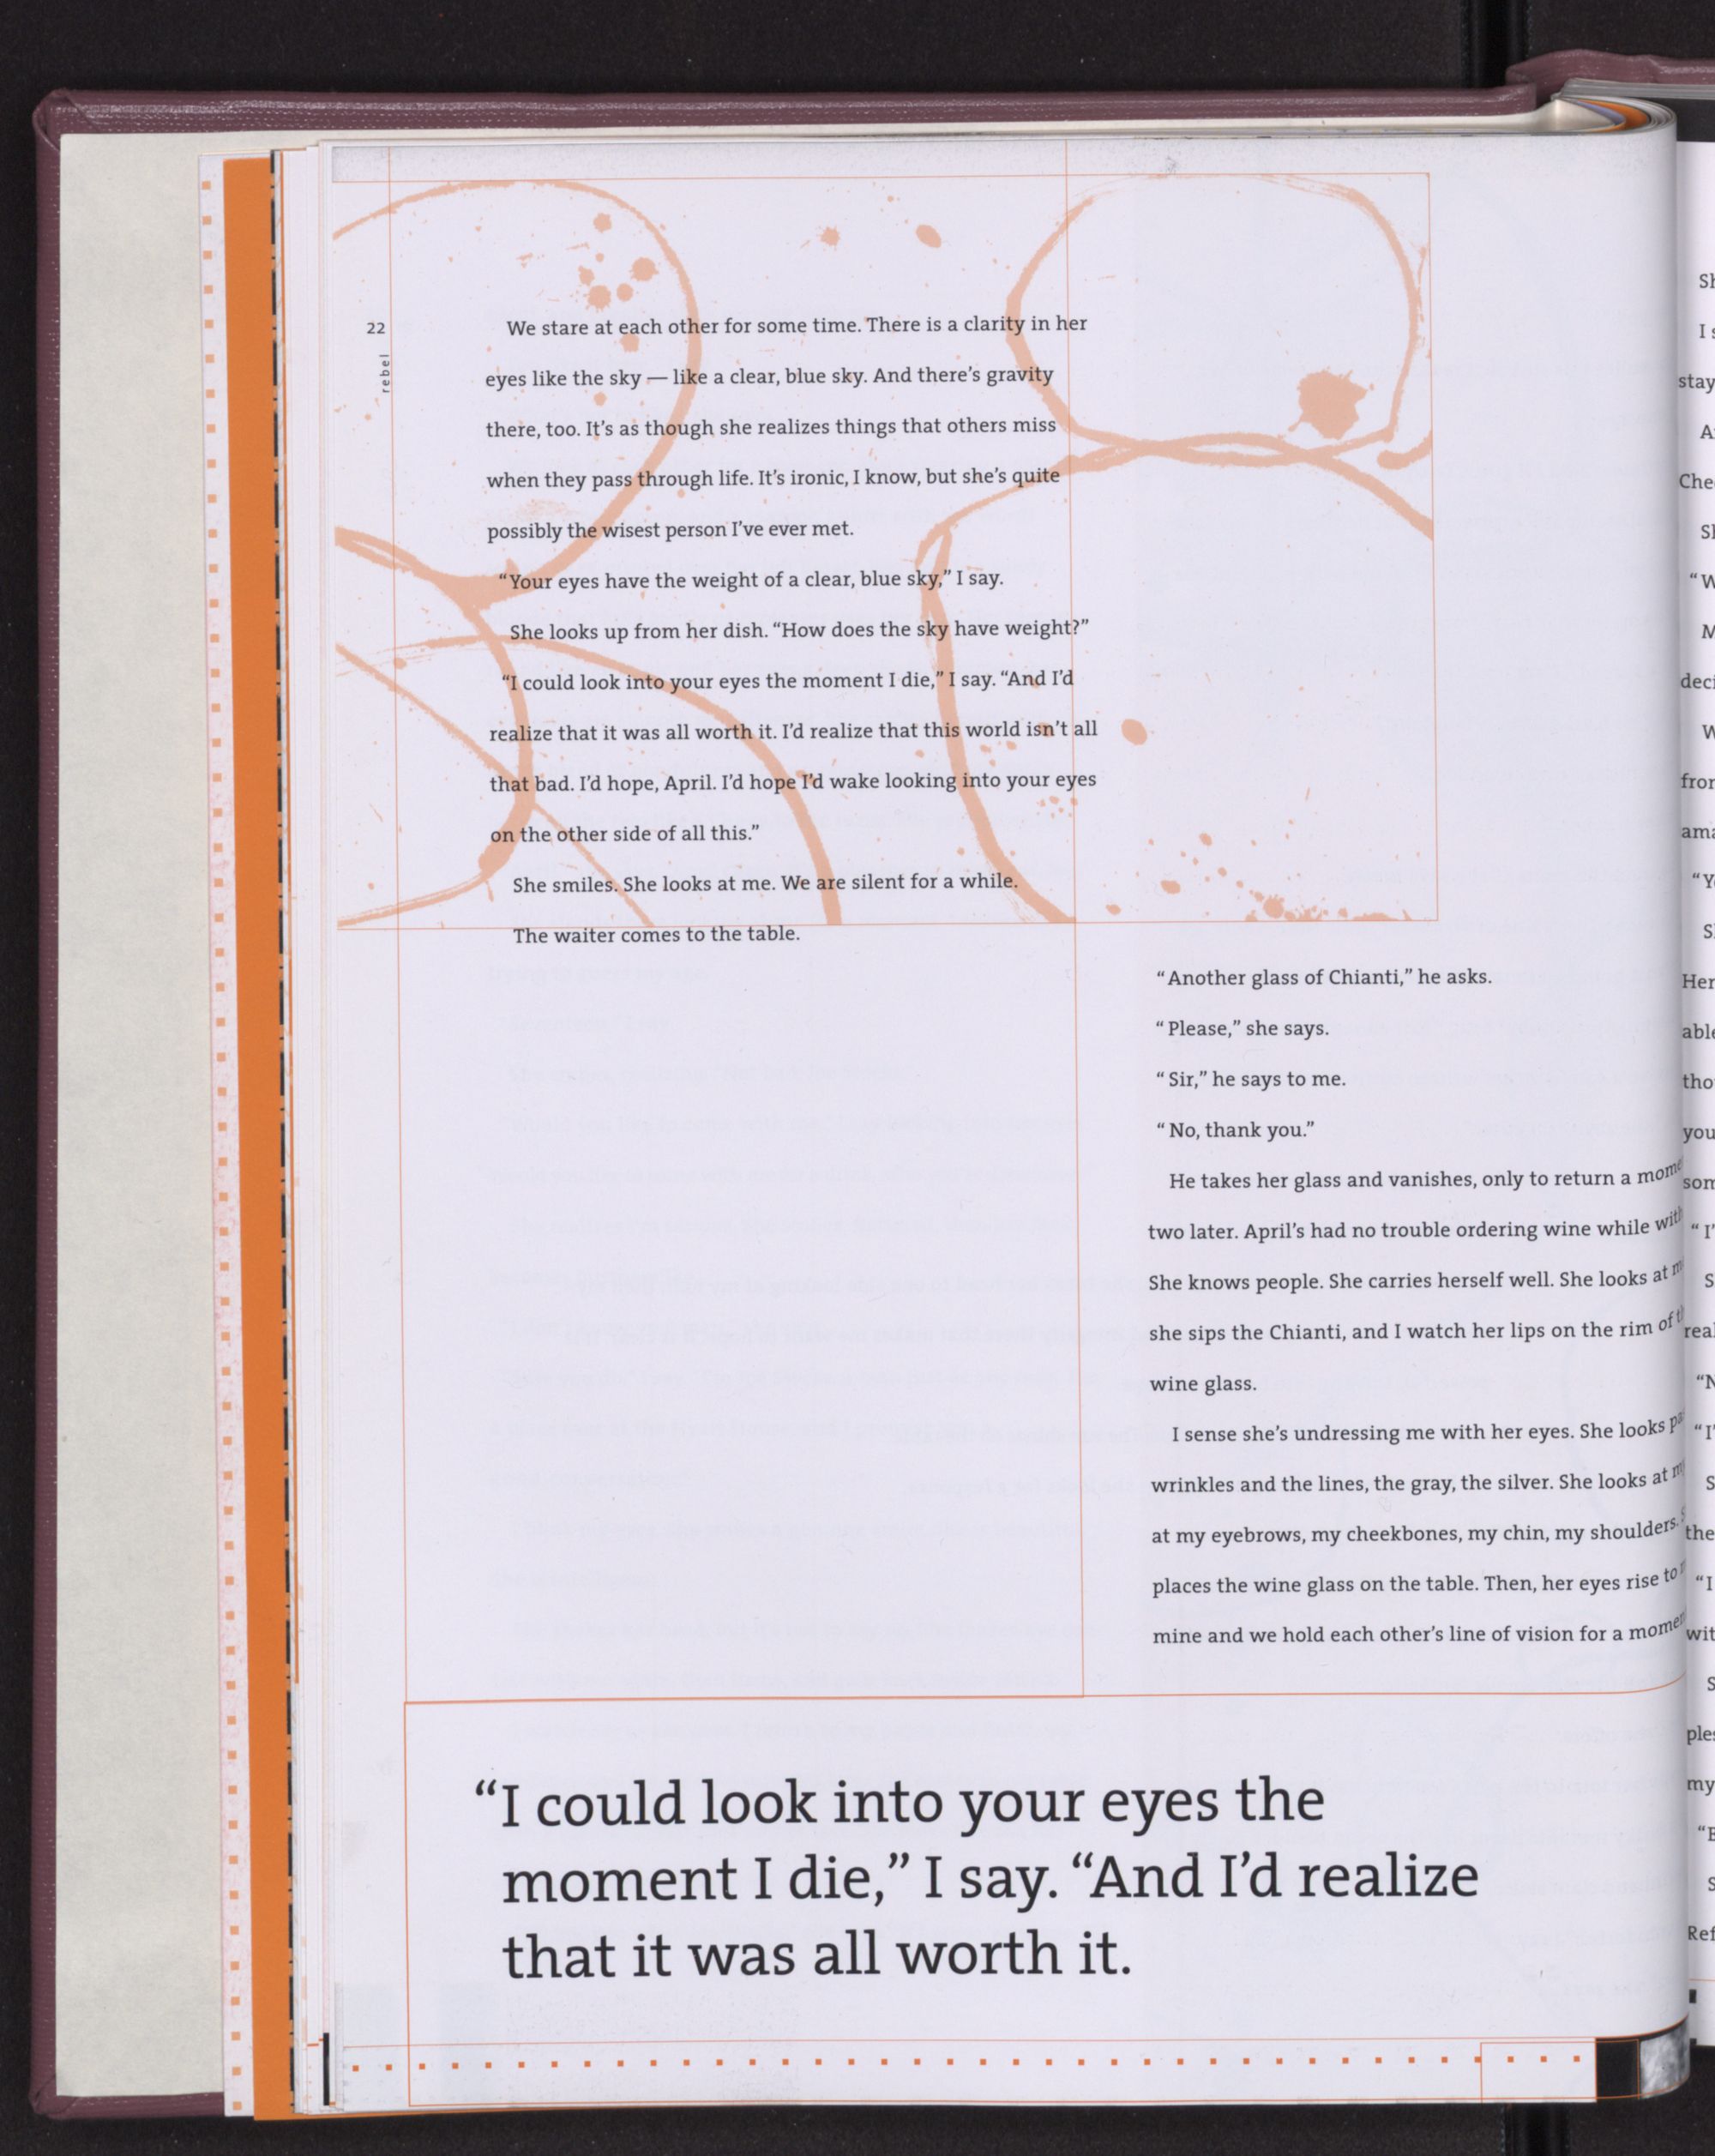 22
rebel
We stare at each other for some time. There is a clarity in her
eyes like the sky — like a clear, blue sky. And there's gravity
there, too. It's as though she realizes things that others miss
when they pass through life. It's ironic, I know, but she's quite
possibly the wisest person I've ever met.
“Your eyes have the weight of a clear, blue sky,” I say.
She looks up from her dish. “How does the sky have weight?”
“I could look into your eyes the moment I die,” I say. “And I'd
realize that it was all worth it. I'd realize that this world isn't all
that bad. I'd hope, April. I'd hope I'd wake looking into your eyes
on the other side of all this.”
She smiles. She looks at me. We are silent for a while.
The waiter comes to the table.
“Another glass of Chianti,” he asks.
“Please,” she says.
“Sir,” he says to me.
“No, thank you.”
He takes her glass and vanishes, only to return a
two later. April's had no trouble ordering wine while with
She knows people. She carries herself well. She looks at
she sips the Chianti, and I watch her lips on the rim of
wine glass.
I sense she's undressing me with her eyes. She looks
wrinkles and the lines, the gray, the silver. She looks at
at my eyebrows, my cheekbones, my chin, my shoulders.
places the wine glass on the table. Then, her eyes rise to
mine and we hold each other's line of vision for a
“I could look into your eyes the
moment I die,” I say. “And I'd realize
that it was all worth it.